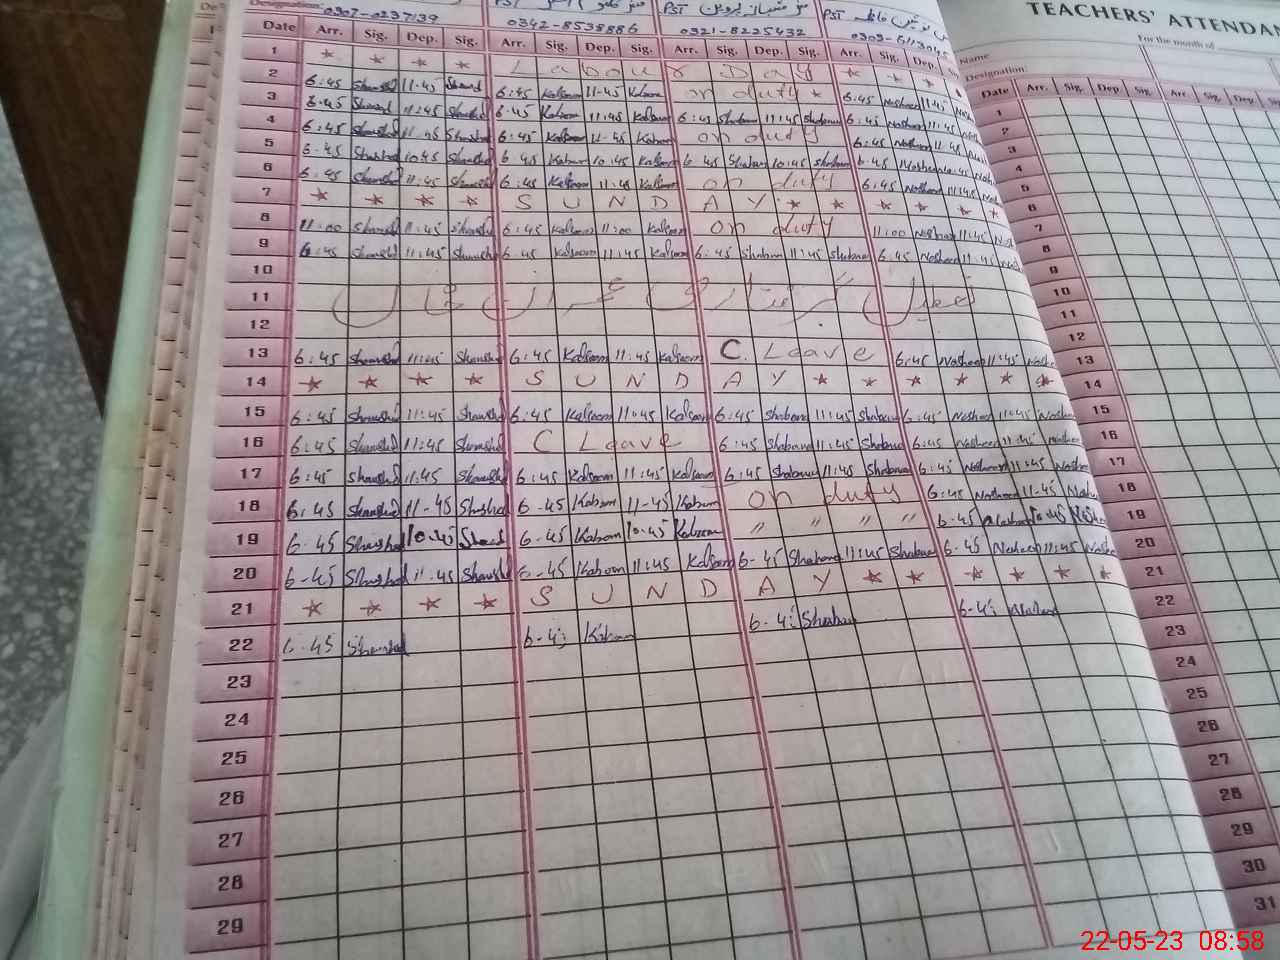 TEACHERS' ATTENDAN
For the month of
Name
Designation:
Designation:
0307-0237139 0342-8538886 PST 0321-8225432 PST
Date Arr. Sig. Dep. Sig. Arr. Sig. Dep. Sig. Arr. Sig. Dep. Sig. Arr. Sig. Dep.
Date Arr. Sig. Dep. Sig. Arr. Sig. Dep. Sig.
1 * * * * Labour Day * * *
2 6:45 Shamshd 11-45 Shamshd 6:45 Kalsoom 11-45 Kalsoom on duty * 6:45 Nosheen 11:45
3 6:45 Shamshd 11:45 Shamshd 6-45 Kalsoom 11:45 Kalsoom 6:45 Shabana 11:45 Shabana 6:45 Nosheen 11:45
4 6:45 Shamshd 11-45 Shamshd 6:45 Kalsoom 11-45 Kalsoom on duty 6:45 Nosheen 11-45
5 6-45 Shamshd 10:45 Shamshd 6-45 Kalsoom 10:45 Kalsoom 6-45 Shabana 10:45 Shabana 6-45 Nosheen
6 6:45 Shamshd 11:45 Shamshd 6:45 Kalsoom 11:45 Kalsoom on duty 6:45 Nosheen 11:45
7 * * * * S U N D A Y * * * * * *
8 11:00 Shamshd 11:45 Shamshd 6:45 Kalsoom 11:00 Kalsoom on duty 11:00 Nosheen 11:45
9 6:45 Shamshd 11:45 Shamshd 6:45 Kalsoom 11:45 Kalsoom 6:45 Shabana 11:45 Shabana 6:45 Nosheen 11:45
10
11 عمران خان
12
13 6:45 Shamshd 11:45 Shamshd 6:45 Kalsoom 11:45 Kalsoom C. Leave 6:45 Nosheen 11:45 Nosheen
14 * * * * S U N D A Y * * * * * *
15 6:45 Shamshd 11:45 Shamshd 6:45 Kalsoom 11:45 Kalsoom 6:45 Shabana 11:45 Shabana 6:45 Nosheen 11:45 Nosheen
16 6:45 Shamshd 11:45 Shamshd C Leave 6:45 Shabana 11:45 Shabana 6:45 Nosheen 11:45 Nosheen
17 6:45 Shamshd 11:45 Shamshd 6:45 Kalsoom 11:45 Kalsoom 6:45 Shabana 11:45 Shabana 6:45 Nosheen 11:45 Nosheen
18 6:45 Shamshd 11-45 Shamshd 6-45 Kalsoom 11-45 Kalsoom on duty 6:45 Nosheen 11-45
19 6-45 Shamshd 10:45 6-45 Kalsoom 10:45 Kalsoom " " " " 6-45 10:45
20 6-45 Shamshd 11:45 Shamshd 6-45 Kalsoom 11:45 Kalsoom 6-45 Shabana 11:45 Shabana 6-45 Nosheen 11:45
21 * * * * S U N D A Y * * * * * *
22 6-45 Shamshd 6-45 Kalsoom 6-45 Shabana 6-45 Nosheen
23
24
25
26
27
28
29
1
2
3
4
5
6
7
8
9
10
11
12
13
14
15
16
17
18
19
20
21
22
23
24
25
26
27
28
29
30
31
22-05-23 08:58